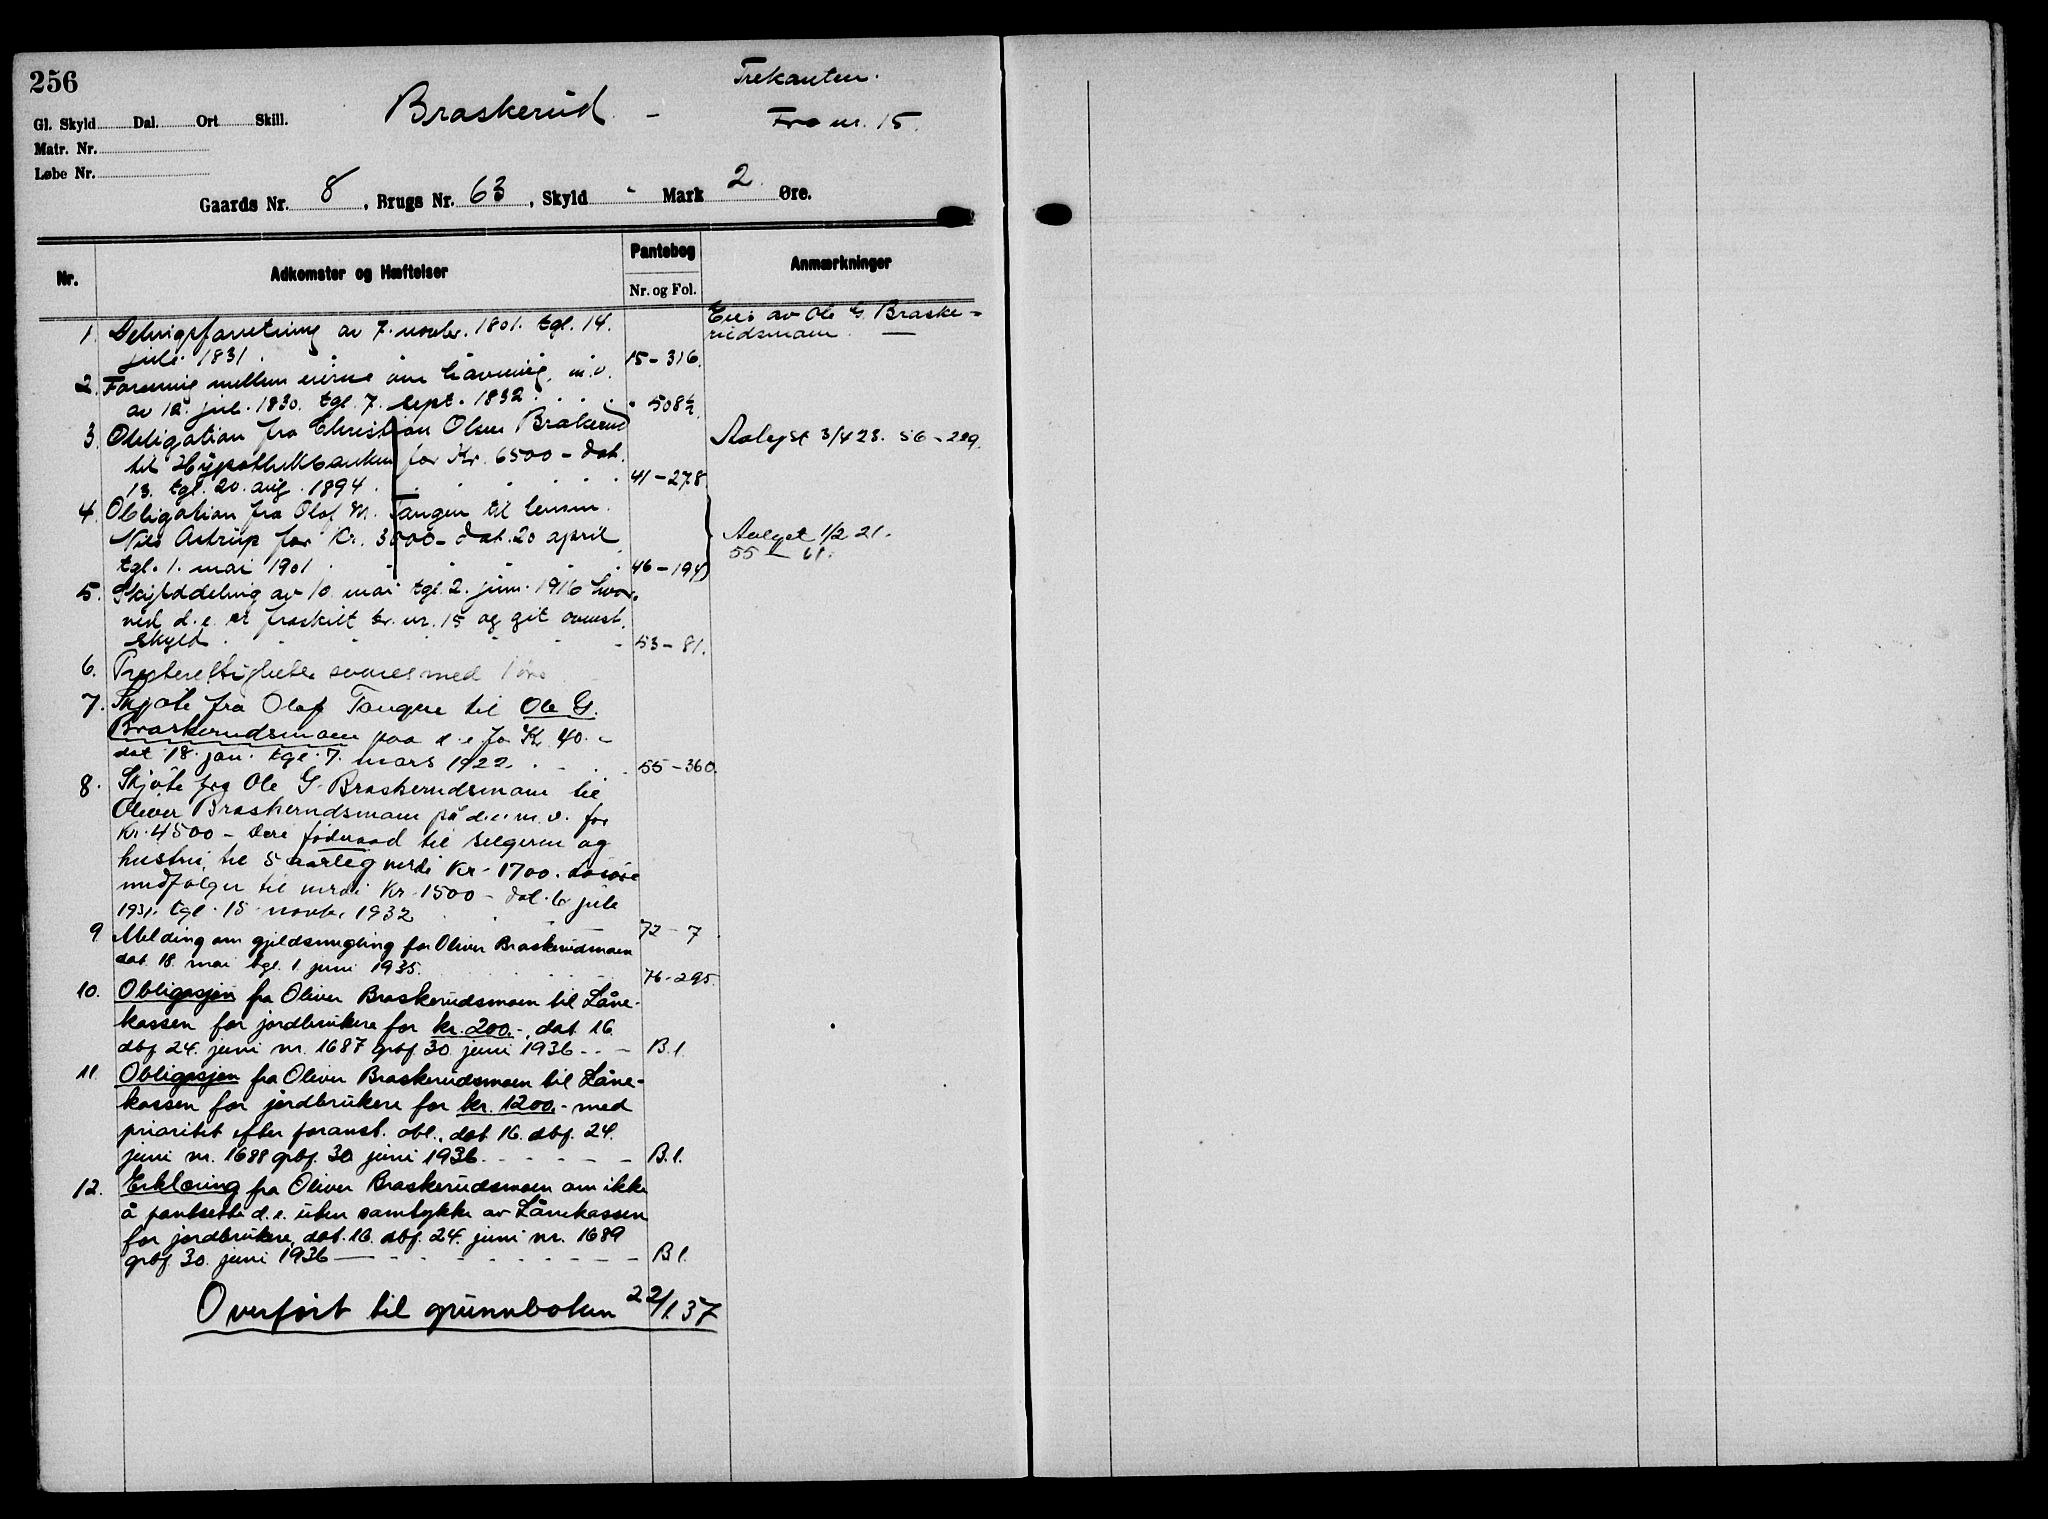 256
Braskerud - Trekanten.
Gl. Skyld Dal. Ort Skill. Fra nr. 15.
Matr. Nr.
Løbe Nr.
Gaards Nr. 8, Brugs Nr. 63, Skyld - Mark 2 Øre.
Nr. Adkomster og Hæftelser Pantebog Anmærkninger
Nr. og Fol.
1. Delingsforretning av 7. novbr. 1801. tgl. 14. Eies av Ole G. Braske-
juli 1831. 15-316. rudsmoen.
2. Forening mellem eierne om havning m.v.
av 12. juli 1830. tgl. 7. sept. 1832. " 508½.
3. Obligation fra Christian Olsen Brakerud Avlyst 3/4 23. 56-229.
til Hypothekbanken for Kr. 6500- dat.
13. tgl. 20. aug. 1894. 41-278
4. Obligation fra Olaf M. Tangen til lensm.
Nils Astrup for Kr. 3000- dat. 20 april Avlyst 1/2 21.
tgl. 1. mai 1901 46-194 55-61.
5. Skylddeling av 10. mai tgl. 2. juni 1916 hvor-
ved d.e. er fraskilt br. nr. 15 og git ovenst.
skyld. 53-81.
6. Presterettigheter svares med 1 øre
7. Skjøte fra Olaf Tangen til Ole G.
Braskerudsmoen paa d.e. for Kr. 40.-
dat 18. jan. tgl. 7. mars 1922. 55-360.
8. Skjøte fra Ole G. Braskerudsmoen til
Oliver Braskerudsmoen på d.e. m.v. for
Kr. 4500- føderaad til selgeren og
hustru til 5 aarlig verdi Kr. 1700. Løsøre
medfølger til verdi Kr. 1500- dat. 6 juli
1931. tgl. 15. novbr. 1932 72-7
9 Melding om gjeldsmegling for Oliver Braskerudmoen
dat. 18. mai tgl. 1. juni 1935. 76-295.
10. Obligasjon fra Oliver Braskerudsmoen til Låne-
kassen for jordbrukere for kr. 200.-, dat. 16.
dbf. 24. juni nr. 1687 grbf. 30. juni 1936 B.1.
11. Obligasjon fra Oliver Braskerudsmoen til Låne-
kassen for jordbrukere for kr. 1200.- med
prioritet efter foranst. obl., dat. 16. dbf. 24.
juni nr. 1688 grbf. 30. juni 1936. B.1.
12. Erklæring fra Oliver Braskerudsmoen om ikke
å pantsette d.e. uten samtykke av Lånekassen
for jordbrukere, dat. 16. dbf. 24. juni nr. 1689
grbf. 30. juni 1936 B1.
Overført til grunnboken 22/1 37